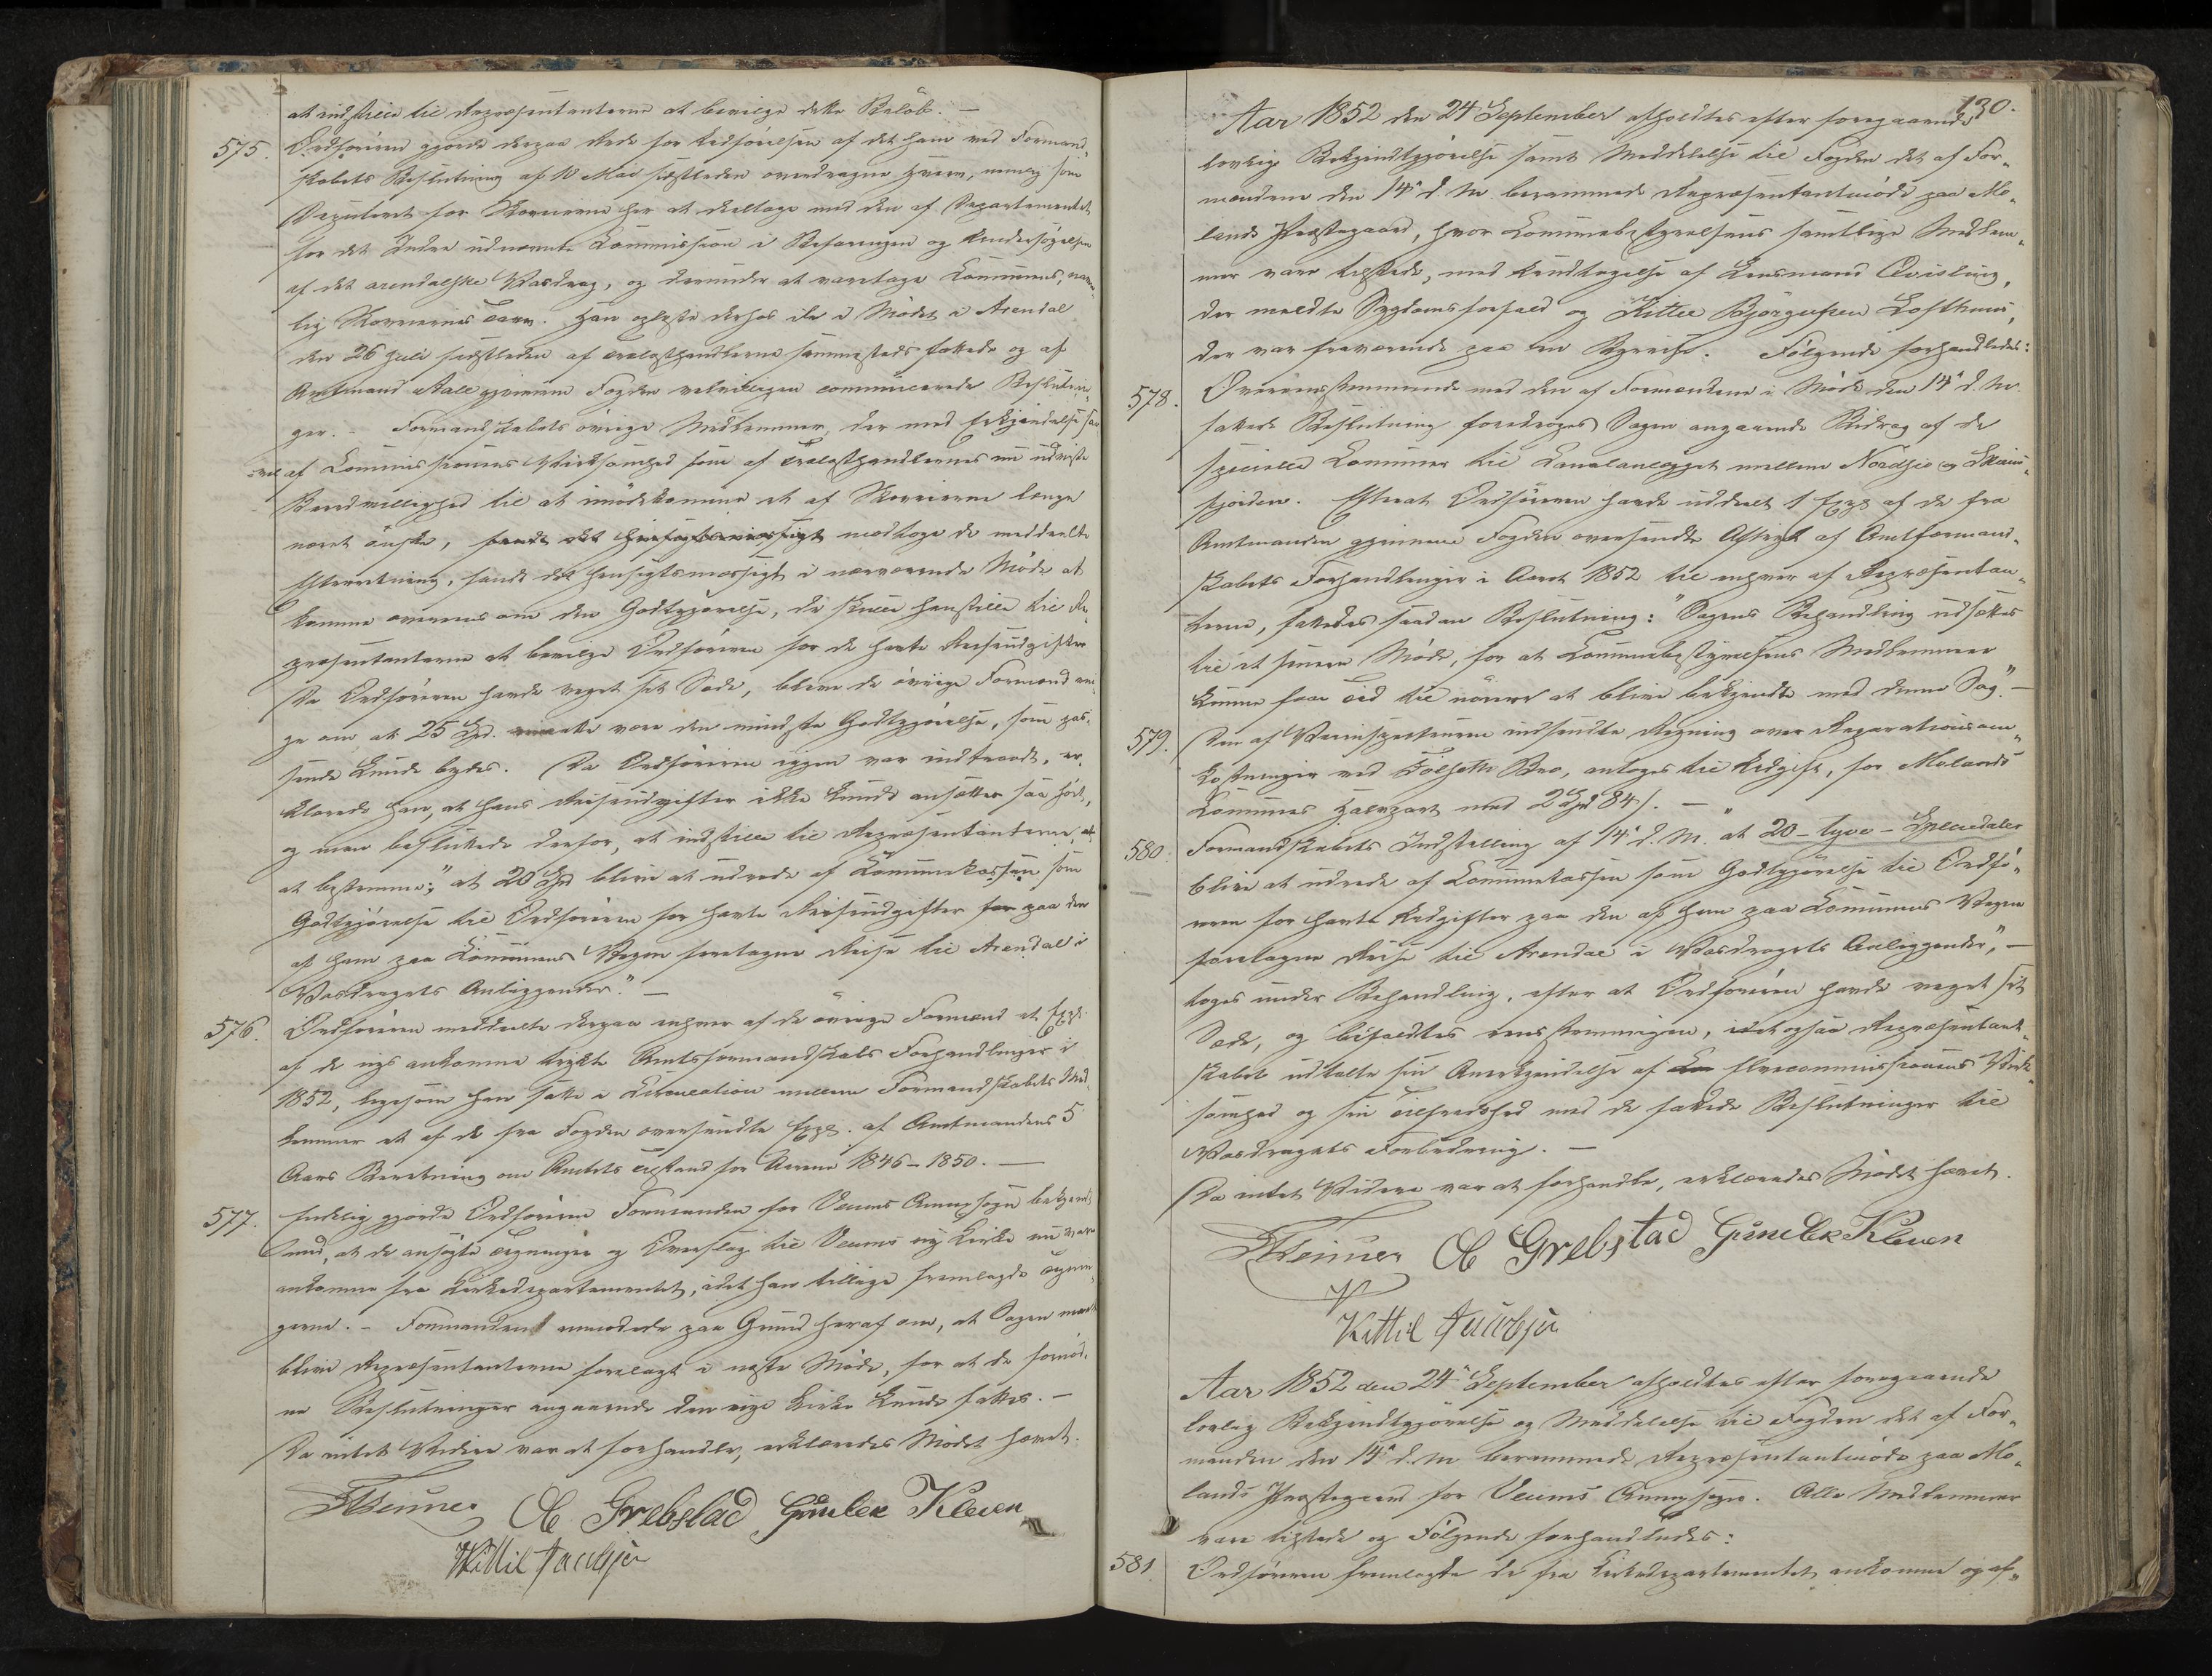 at indstille til Repræsentanterne at bevilge dette Beløb. —
575. Ordføreren gjorde derpaa Rede for Udførelsen af det ham ved Formand-
skabets Beslutning af 10 Mai sidstleden overdragne Hverv, nemlig som
Deputeret for Skoveierne her at deeltage med den af Departementet
for det Indre udnævnte Commission i Befaringen og Undersøgelsen
af det arendalske Vasdrag, og derunder at varetage Communens, nem-
lig Skoveiernes Tarv. Han oplæste derhos de i Mødet i Arendal
den 26 Juli sidstleden af Trælasthandlerne sammesteds fattede og af
Amtmand Aall gjennem Fogden velvilligen communicerede Beslutnin-
ger. – Formandskabets øvrige Medlemmer, der med Erkjendelse saa-
vel af Commissionens Virksomhed som af Trælasthandlernes nu udviste
Beredvillighed til at imødekomme et af Skoveierne længe
næret Ønske, fandt det hensigtsmæssigt modtoge de meddeelte
Efterretning, fandt det hensigtsmæssigt i nærværende Møde at
komme overeens om den Godtgjørelse, de skulle henstille til Re-
præsentanterne at bevilge Ordføreren for de havte Reiseudgifter
Da Ordføreren havde veget sit Sæde, bleve de øvrige Formænd eni-
ge om at 25 Spd. maatte være den mindste Godtgjørelse, som pas-
sende kunde bydes. Da Ordføreren igjen var indtraadt, er-
klærede han, at hans Reiseudgifter ikke kunde ansættes saa høit,
og man besluttede derfor, at indstille til Repræsentanterne, at
at bestemme: "at 20 Spd blive at udrede af Communekassen som
Godtgjørelse til Ordføreren for havte Reiseudgifter for paa den
af ham paa Communens Vegne foretagne Reise til Arendal i
Vasdragets Anliggender." —
576. Ordføreren meddeelte derpaa enhver af de øvrige Formænd et Expl.
af de nys ankomne trykte Amtsformandskabs Forhandlinger i
1852, ligesom han satte i Circulation mellem Formandskabets Med-
lemmer et af de fra Fogden oversendte Expl. af Amtmandens 5
Aars Beretning om Amtets Tilstand for Aarene 1846–1850. —
577. Endelig gjorde Ordføreren Formanden for Veums Annexsogn bekjendt
med, at de ansøgte Tegninger og Overslag til Veums ny Kirke nu vare
ankomne fra Kirkedepartementet, idet han tillige fremlagde Tegnin-
gerne. – Formanden anmodede paa Grund heraf om, at Sagen maatte
blive Repræsentanterne forelagt i næste Møde, for at de fornød-
ne Beslutninger angaaende den nye Kirke kunde fattes. —
Da intet Videre var at forhandle, erklæredes Mødet hævet.
O Grebstad Gunlek Kleven
Kittil Jacobsen
130.
Aar 1852 den 24 September afholdtes efter foregaaende
lovlige Bekjendtgjørelse samt Meddelelse til Fogden det af For-
mændene den 14de d. M. berammede Repræsentantmøde paa Mo-
lands Præstegaard, hvor Communebestyrelsens samtlige Medlem-
mer vare tilstede, med Undtagelse af Lensmand Qvisling,
der meldte Sygdomsforfald og Kittel Björgufsen Lofthuus,
der var fraværende paa en Bygreise. Følgende forhandledes:
578. Overeensstemmende med den af Formændene i Møde den 14de d. M.
fattede Beslutning foredroges Sagen angaaende Bidrag af de
specielle Communer til Canalanlægget mellem Nordsjø og Skiens-
fjorden. Efterat Ordføreren havde uddeelt 1 Expl af de fra
Amtmanden gjennem Fogden oversendte Aftryk af Amtformand-
skabets Forhandlinger i Aaret 1852 til enhver af Repræsentan-
terne, fattedes saadan Beslutning: "Sagens Behandling udsættes
til et senere Møde, for at Communebestyrelsens Medlemmer
kunne faae Tid til nøiere at blive bekjendte med denne Sag". —
579. Den af Veiinspecteuren indsendte Regning over Reparationsom-
kostninger ved Folseth Bro, antoges til Udgift, for Molands
Communes Halvpart med 2 Spd 84 s. —
580. Formandskabets Indstilling af 14de d. M. "at 20 – tyve – Speciedaler
blive at udrede af Communekassen som Godtgjørelse til Ordfø-
reren for havte Udgifter paa den af ham paa Communens Vegne
foretagne Reise til Arendal i Vasdragets Anliggender", —
toges under Behandling, efter at Ordføreren havde veget sit
Sæde, og bifaldtes eensstemmigen, idet ogsaa Repræsentant-
skabet udtalte sin Anerkjendelse af Elvecommissionens Virk-
somhed og sin Tilfredshed med de fattede Beslutninger til
Vasdragets Forbedring. —
Da intet Videre var at forhandle, erklæredes Mødet hævet.
O Grebstad Gunlek Kleven
Kittil Jacobsen
Aar 1852 den 24de September afholdtes efter foregaaende
lovlig Bekjendtgjørelse og Meddelelse til Fogden det af For-
manden den 14de d. M berammede Repræsentantmøde paa Mo-
lands Præstegaard for Veums Annexsogn. Alle Medlemmer
vare tilstede og Følgende forhandledes:
581. Ordføreren fremlagde de fra Kirkedepartementet ankomne og af-